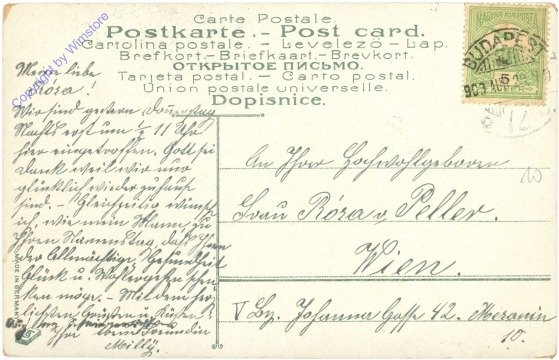 Carte Postale.
Postkarte.- Post card.
Cartolina postale. - Levelező - Lap.
Brefkort.- Briefkaart.- Brevkort.
ОТКРЫТОЕ ПИСЬМО.
Tarjeta postal. - Carto postal.
Union postale universelle.
Dopisnice.
MAGYAR KIR. POSTA
BUDAPEST
Meine liebe
Rosa!
Wir sind gestern Donnerstag
Nachts erst um ½ 11 Uhr
hier eingetroffen, Gott sei
dank weil wir nur
glücklich wieder zuhause
sind. - Gleichzeitig wünsch
ich, wie mein Mann, zu
Ihren Namenstag, daß Ihnen
der Allmächtige Gesundheit
Glück u. Wohlergehen schen
ken möge. - Mit den herz
lichsten Grüßen u. Küssen
Ihre Freundin
Milly.
An Ihrer Hochwohlgeboren
Frau Róza v. Peller.
Wien.
V Bz. Johanna Gasse 42. Mezanin
10.
10
Copyright by Wimstore